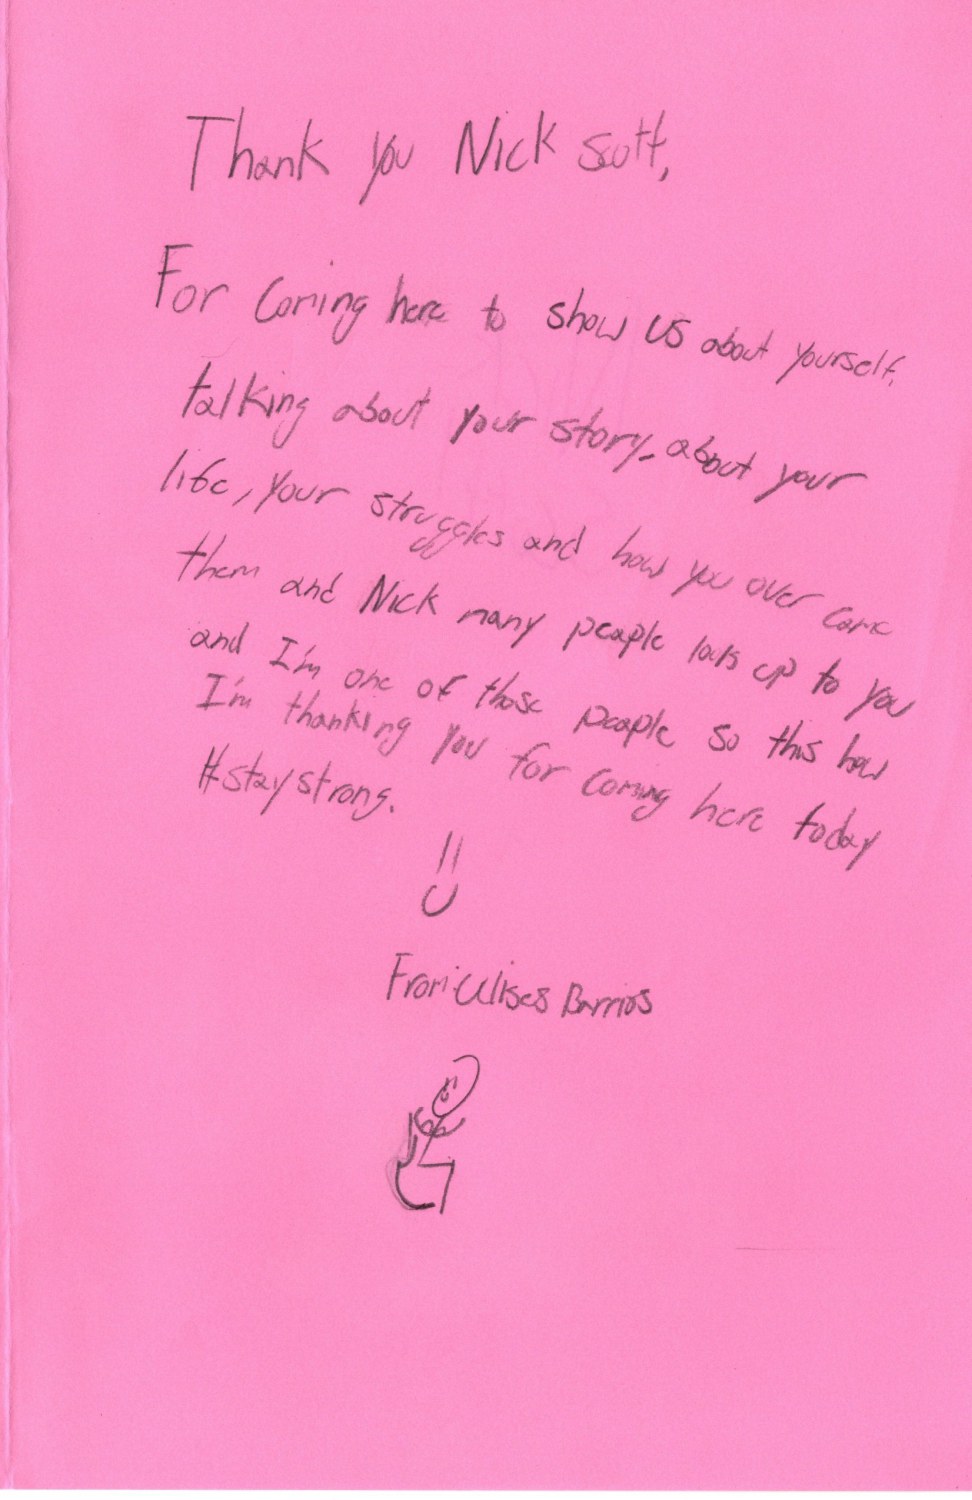 Thank you Nick Scott,
For Coming here to show us about yourself,
talking about your story, about your
life, your struggles and how you over came
them and Nick many people looks up to you
and I'm one of those people so this how
I'm thanking you for coming here today
#staystrong.
From: Ulises Barrios